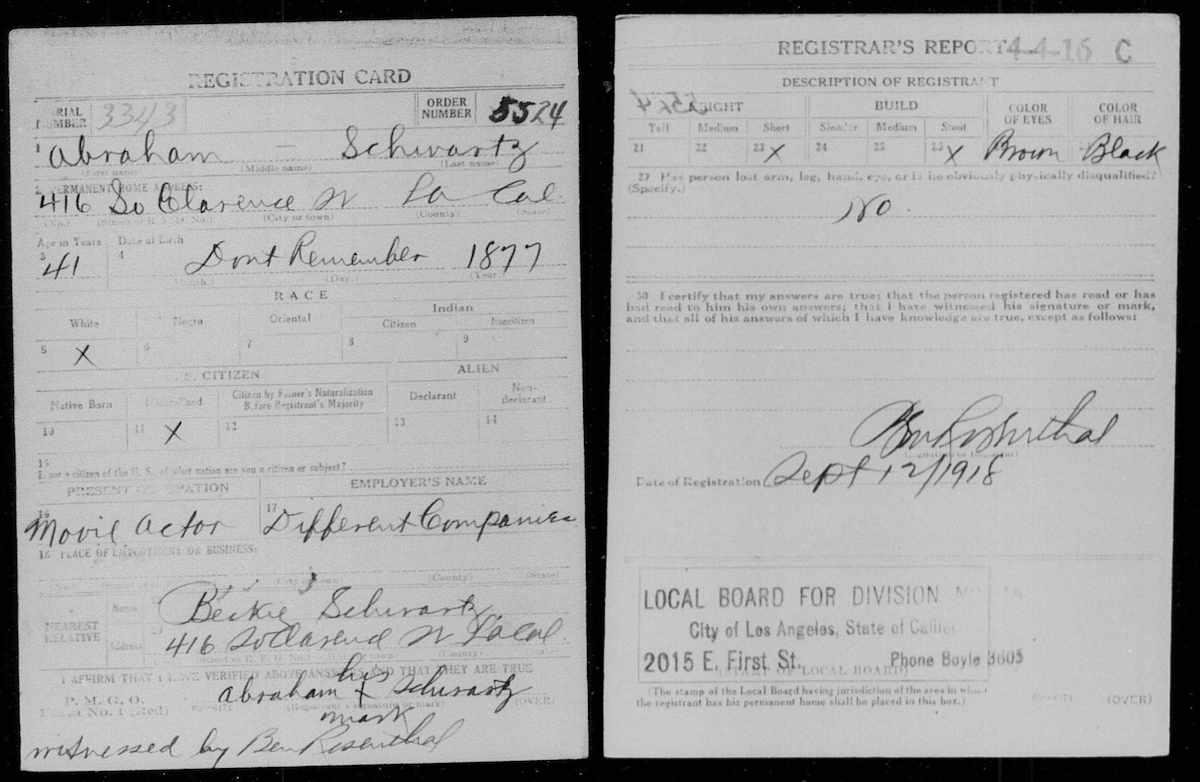 REGISTRATION CARD
SERIAL NUMBER 3343
ORDER NUMBER 5524
1 Abraham — Schwartz
(First name) (Middle name) (Last name)
2 PERMANENT HOME ADDRESS:
416 So Clarence La Cal.
(No.) (City or town) (County) (State)
Age in Years Date of Birth
3 41 4 Dont Remember 1877
(Month.) (Day.) (Year.)
RACE
White Negro Oriental Indian
Citizen Noncitizen
5 X 6 7 8 9
U. S. CITIZEN ALIEN
Native Born Naturalized Citizen by Father's Naturalization Before Registrant's Majority Declarant Non-declarant
10 11 X 12 13 14
15
If not a citizen of the U. S. of what nation are you a citizen or subject?
PRESENT OCCUPATION EMPLOYER'S NAME
16 Movie Actor 17 Different Companies
18 PLACE OF EMPLOYMENT OR BUSINESS:
(City or town) (County) (State)
NEAREST RELATIVE Name Beckie Schwartz
Address 416 So Clarence La Cal.
I AFFIRM THAT I HAVE VERIFIED ABOVE ANSWERS AND THAT THEY ARE TRUE
P. M. G. O.
Form No. 1 (Red)
his
Abraham X Schwartz
(Registrant's signature or mark) (OVER)
mark
witnessed by Ben Rosenthal
REGISTRAR'S REPORT 4-4-16 C
DESCRIPTION OF REGISTRANT
5524
HEIGHT BUILD COLOR OF EYES COLOR OF HAIR
Tall Medium Short Slender Medium Stout
21 22 23 X 24 25 X Brown Black
27 Has person lost arm, leg, hand, eye, or is he obviously physically disqualified?
(Specify.)
No.
30 I certify that my answers are true; that the person registered has read or has
had read to him his own answers; that I have witnessed his signature or mark,
and that all of his answers of which I have knowledge are true, except as follows:
Ben Rosenthal
Date of Registration Sept 12/1918
LOCAL BOARD FOR DIVISION
City of Los Angeles, State of Califor
2015 E. First St. Phone Boyle 3603
(STAMP OF LOCAL BOARD)
(The stamp of the Local Board having jurisdiction of the area in which
the registrant has his permanent home shall be placed in this box.)
(OVER)